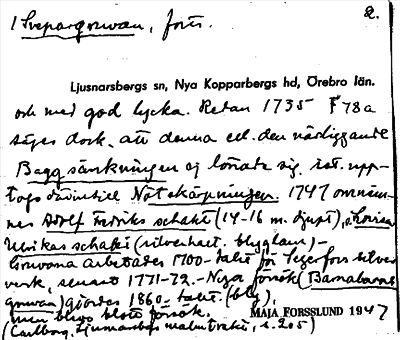 1 Svepargruvan, forts. 2.
Ljusnarsbergs sn, Nya Kopparbergs hd, Örebro län.
och med god lycka. Redan 1735 F 78a
säges dock, att denna el. den närliggande
Baggsänkningen ej lönade sig, ist. upp-
togs Notskärpningen. 1747 omnäm-
nes Adolf Fredriks schakt (14-16 m. djupt), o. Lovisa
Ulrikas schakt (silverhalt. blyglans) –
Gruvona arbetades 1700-talet för Segerfors silver
verk, senast 1771-72. – Nya försök (Barnabarns
gruvan) gjordes 1860-talet (bly),
men blevo blott försök. MAJA FORSSLUND 1947
(Carlborg, Ljusnarsbergs malmtrakt, s. 205)